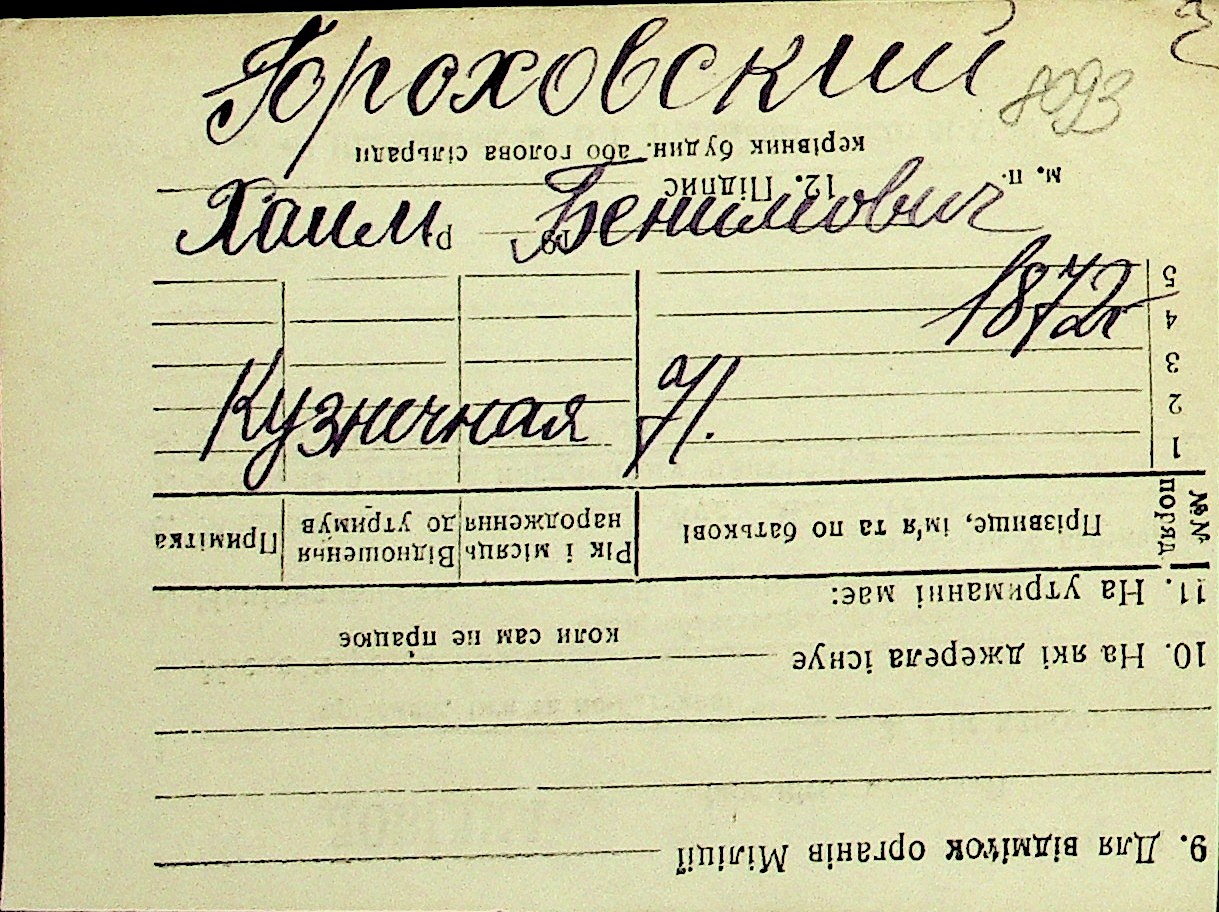 Гороховский
8093
Хаим Бенимович
1872г
Кузнечная 71.
9. Для відміток органів Міліції
10. На які джерела існує
коли сам не працює
11. На утриманні має:
№№ поряд. Прізвище, ім'я та по батькові Рік і місяць народження Відношення до утримув Примітка
1
2
3
4
5
19 р.
12. Підпис
м. п.
керівник будин. або голова сільради